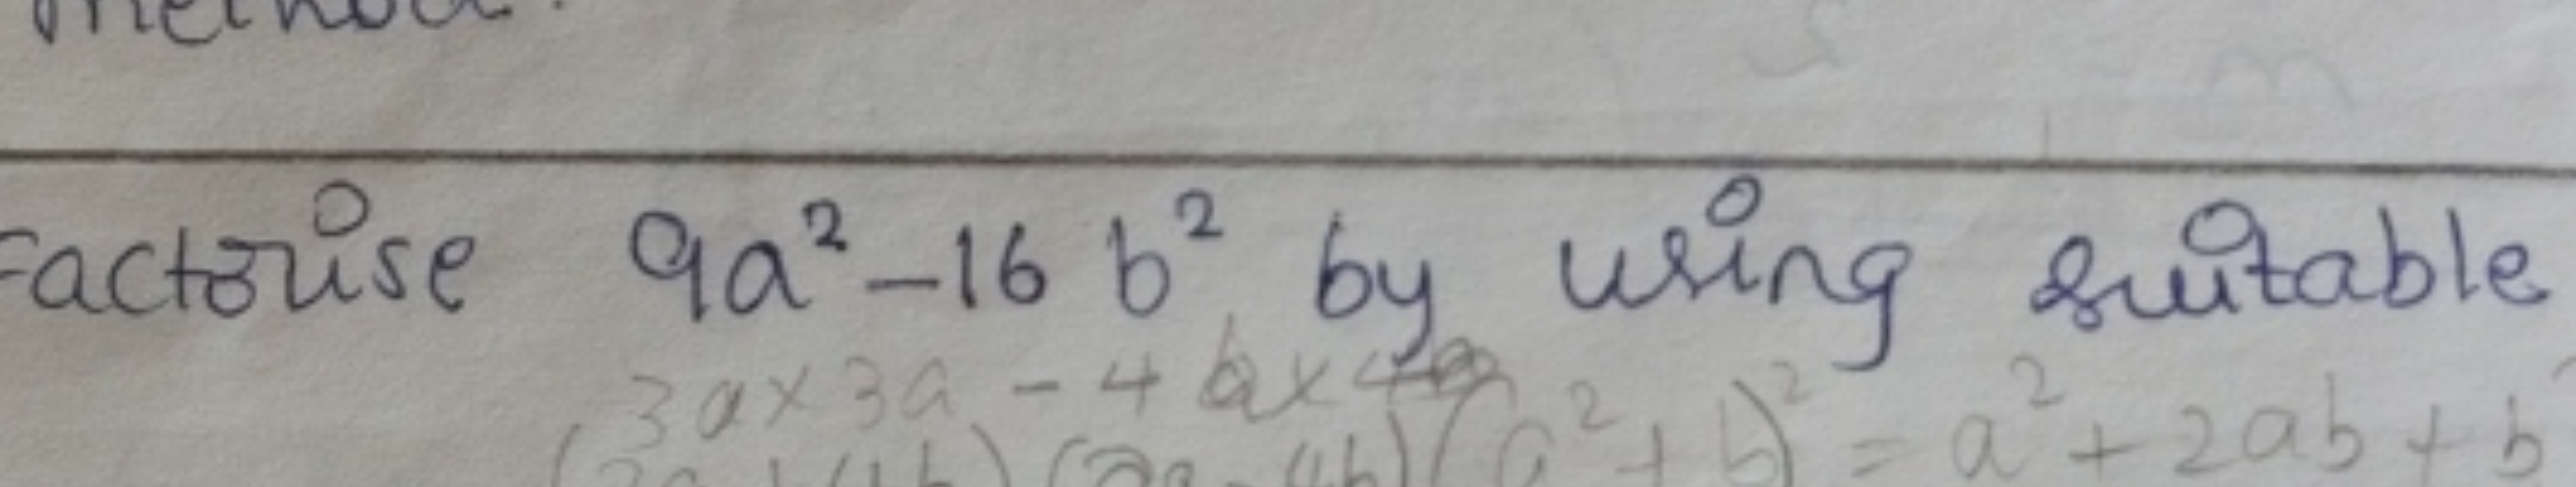 method.
Factorise 9a² - 16 b² by using suitable
3a × 3a - 4b × 4b
(3a + 4b) (3a - 4b) (a² + b)² = a² + 2ab + b